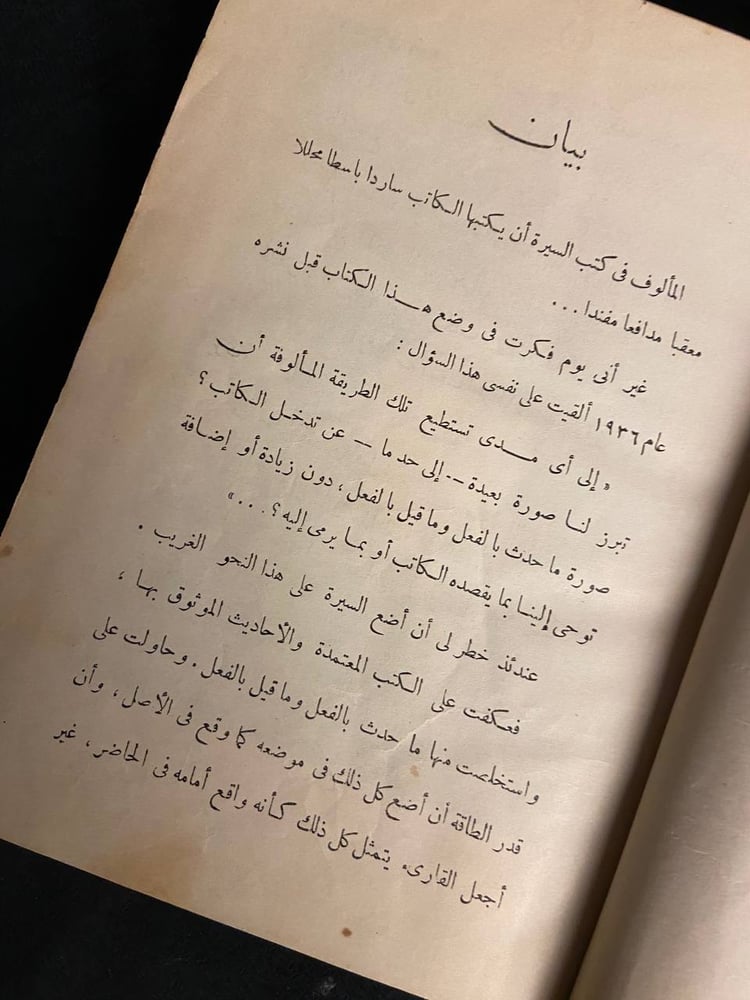 بيان
المألوف فى كتب السيرة أن يكتبها الكاتب ساردا باسطا محللا
معقبا مدافعا مفندا . . .
غير أنى يوم فكرت فى وضع هـــذا الكتاب قبل نشره
عام ١٩٣٦ ألقيت على نفسى هذا السؤال :
« إلى أى مــدى تستطيع تلك الطريقة المألوفة أن
تبرز لنا صورة بعيدة -- إلى حد ما — عن تدخل الكاتب ؟
صورة ما حدث بالفعل وما قيل بالفعل ، دون زيادة أو إضافة
توحى إلينا بما يقصده الكاتب أو بما يرمى إليه ؟ . . . »
عندئذ خطر لى أن أضع السيرة على هذا النحو الغريب .
فعكفت على الكتب المعتمدة والأحاديث الموثوق بها ،
واستخلصت منها ما حدث بالفعل وما قيل بالفعل . وحاولت على
قدر الطاقة أن أضع كل ذلك فى موضعه كما وقع فى الأصل ، وأن
أجعل القارىء يتمثل كل ذلك كأنه واقع أمامه فى الحاضر ، غير